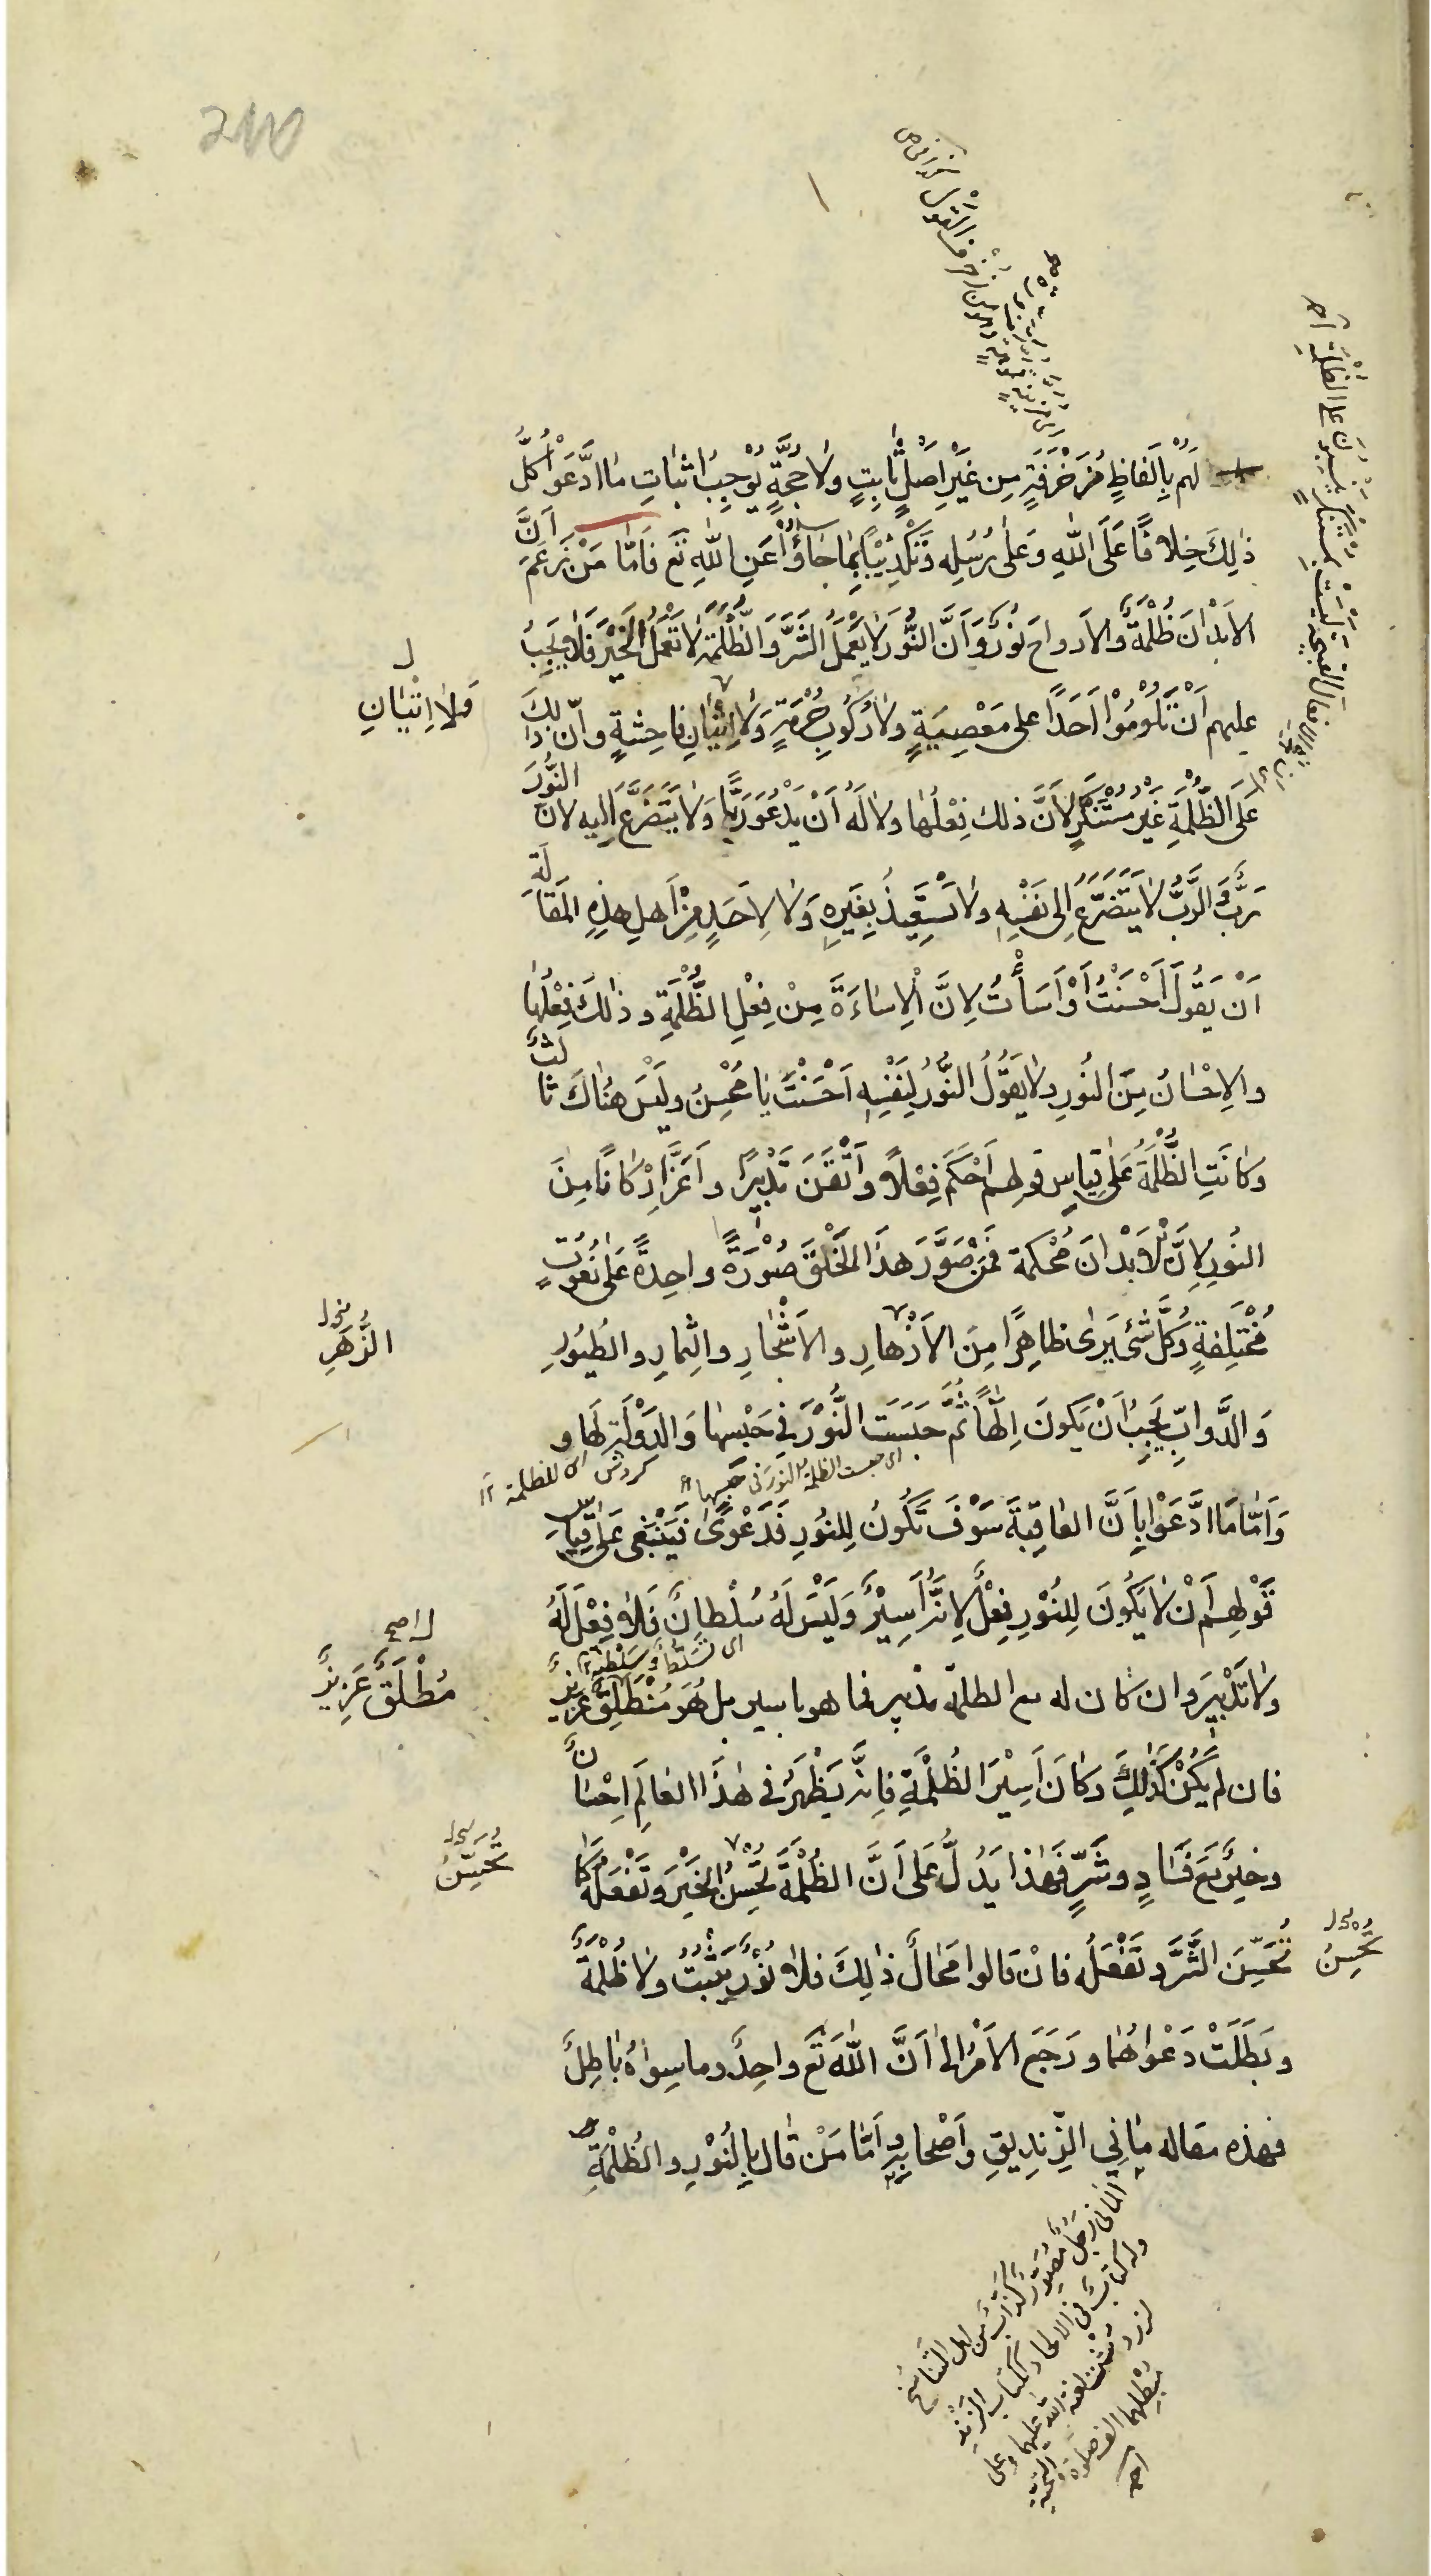 لَهُمْ بِاَلْفاظٍ مُزَخْرَفَةٍ مِن غَيْرِ اَصْلٍ ثابِتٍ ولا حُجَّةٍ تُوْجِبُ اثباتِ مَا ادَّعَوْا كُلُّ
ذٰلِكَ خِلافًا عَلَى اللهِ وَعَلى رُسُلِه وَتَكْذِيْبًا بِمٰا جَاؤُا عَنِ اللهِ تَع فَاَمّا مَنْ زَعَمَ اَنَّ
الاَبْدانَ ظُلْمَةٌ والاَرواحَ نُورٌ وَاَنَّ النُّورَ لا يَعْمَلُ الشَّرَّ وَالظُّلْمَةَ لا تَعْمَلُ الخَيْرَ فَلا يَجِبُ
عليهم اَنْ يَلُوْمُوْا اَحَدًا على مَعْصِيَةٍ ولا رُكُوبِ حُرْمَةٍ وَلا اِتْيٰانِ فاحِشَةٍ وانّ ذٰلِكَ
وَلا اِتْيٰانِ
عَلَى الظُّلْمَةِ غَيْرُ مُسْتَنْكَرٍ لاَنَّ ذلك فِعْلُهٰا ولا لَهُ اَنْ يَدْعُوَ رَبًّا وَلا يَتَضَرَّعَ اليه لانّ النُّورَ
رَبٌّ وَالرَّبُّ لا يَتَضَرَّعُ اِلى نَفْسِهِ ولا يَسْتَعِيْذُ بِغَيْرِهِ وَلا لِاَحَدٍ مِنْ اَهلِ هذِهِ المَقالَةِ
اَنْ يَقُولَ اَحْسَنْتُ اَوْ اَسَأْتُ لِانَّ الْاِسٰاءَةَ مِنْ فِعْلِ الظُّلْمَةِ وذٰلكَ فِعْلُهٰا
والاِحْسٰانُ مِنَ النُورِ ولا يَقُولُ النُّورُ لِنَفْسِهِ اَحْسَنْتَ يٰا مُحْسِنُ ولَيْسَ هُنٰاكَ ثالثٌ
وكانَتِ الظُّلْمَةُ عَلى قِياسِ قولهم اَحْكَمَ فِعْلاً واَتْقَنَ تَدْبِيرًا واَعَزَّ اَرْكانًا مِنَ
النُورِ لِاَنَّ الاَبْدانَ مُحْكَمَة فَمَنْ صَوَّرَ هذَا الخَلْقَ صُوْرَةً واحِدةً عَلى نُعُوتٍ
مُخْتَلِفةٍ وكُلُّ شَيْ يُرىٰ ظاهِرًا مِنَ الاَزْهارِ والاَشْجارِ والثِمارِ والطُيُورِ
الزَّهَرِ
وَالدَّوابِّ يَجِبُ اَنْ يَكونَ اِلٰهًا ثُمَّ حَبَسَت النُّوْرَ في حَبْسِهٰا وَالدَوْلَةُ لَها و
اى حبست الظلمة النور فى حبسها
اى للظلمة
وَاَمّا مَا ادَّعَوْا بِاَنَّ العٰاقِبَةَ سَوْفَ تَكُونُ لِلنُورِ فَدَعْوًى فَيَنْبَغى عَلى قِياسِ
قَوْلِهِم اَنْ لا يَكُونَ لِلنُوْرِ فِعْلٌ لِاَنَّهُ اَسِيْرٌ وَلَيْسَ لَهُ سُلْطانٌ فَلا فِعْلَ لَهُ
اى تسَلّطٌ وسَلْطنة
ولا تَدْبِيرَ وان كان له مع الظلمة تدبير فما هو باسير بل هُوَ مُنْطَلِقٌ عَزِيزٌ
مُطْلَقٌ عَزِيزٌ
فان لم يَكُنْ كَذٰلِكَ وكانَ اَسِيْرَ الظُلْمَةِ فاِنّه يَظْهَرُ في هٰذَا العٰالَمِ اِحْسٰانٌ
وخيرٌ مَعَ فَسٰادٍ وشَرٍّ فَهٰذا يَدُلُّ عَلى اَنَّ الظُلْمَةَ تُحْسِنُ الخَيْرَ وتَفْعَلُهُ كَما
تُحَسِّنُ
تُحَسِّنَ الشَّرَّ وتَفْعَلُه فاِنْ قالوا مَحٰالٌ ذٰلِكَ فلا نُوْرٌ يَثْبُتُ ولا ظُلْمَةٌ
تُحْسِنُ
وبَطَلَتْ دَعْواهُمٰا ورَجَعَ الاَمْرُ الىٰ اَنَّ اللهَ تَع واحِدٌ وما سِواهُ باطِلٌ
فهذه مقاله مٰانِي الزِّنديقِ واَصْحابِه واَمّا مَنْ قٰالَ بِالنُوْرِ والظُلْمَةِ
المانى رَجلٌ مُصَوّر كذّابٌ من اهل التناسُخ
وله كتابٌ فى الالحاد ككتاب الزند
لزردشت لعنة الله عليهما وعلى